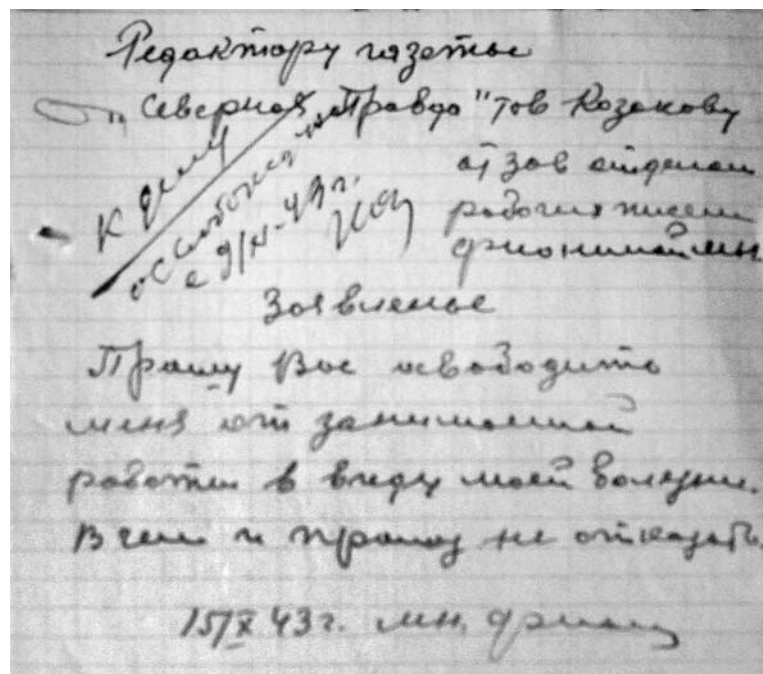 Редактору газеты
„Северная Правда" тов Козакову
от зав отделом
рабочих писем
К делу
освободить
с 9/XI-43 г.
Заявленье
Прошу Вас освободить
меня от занимаемой
работы в виду моей болезни.
В чем и прошу не отказать.
15/X 43 г. мн.